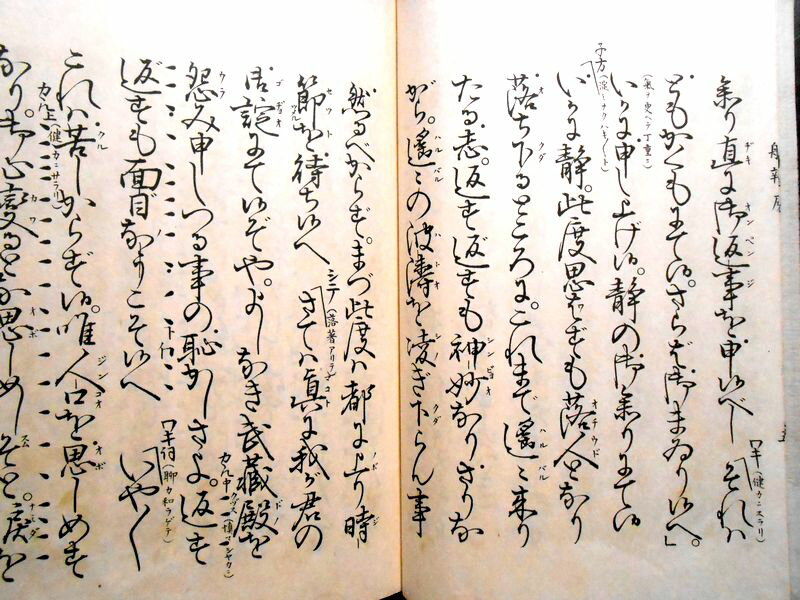 舟辨慶
参り直に御返事を申候べし ワキ(健カニスラリ)「それハ
ともかくもにて候。さらば御まゐり候へ。」
いかに申し上げ候。静の御参りにて候
子方 いかに静。此度思はずも落人となり
落ち下るところに。これまで遥〻来り
たる志。返す返すも神妙なりさりな
がら。遥〻の波濤を凌ぎ下らん事
然るべからず。まづ此度ハ都に上り時
節を待ち候へ シテ(落著アリテ)「さてハ真に我が君の
御諚にて候ぞや。よしなき武蔵殿を
怨み申しつる事の恥かしさよ。返す
返すも面目なうこそ候へ ワキ詞(聊カ和ラゲテ)「いや〱
これハ苦しからず候。唯人口を思しめす
なり。御心変るとな思しめしそと。涙を